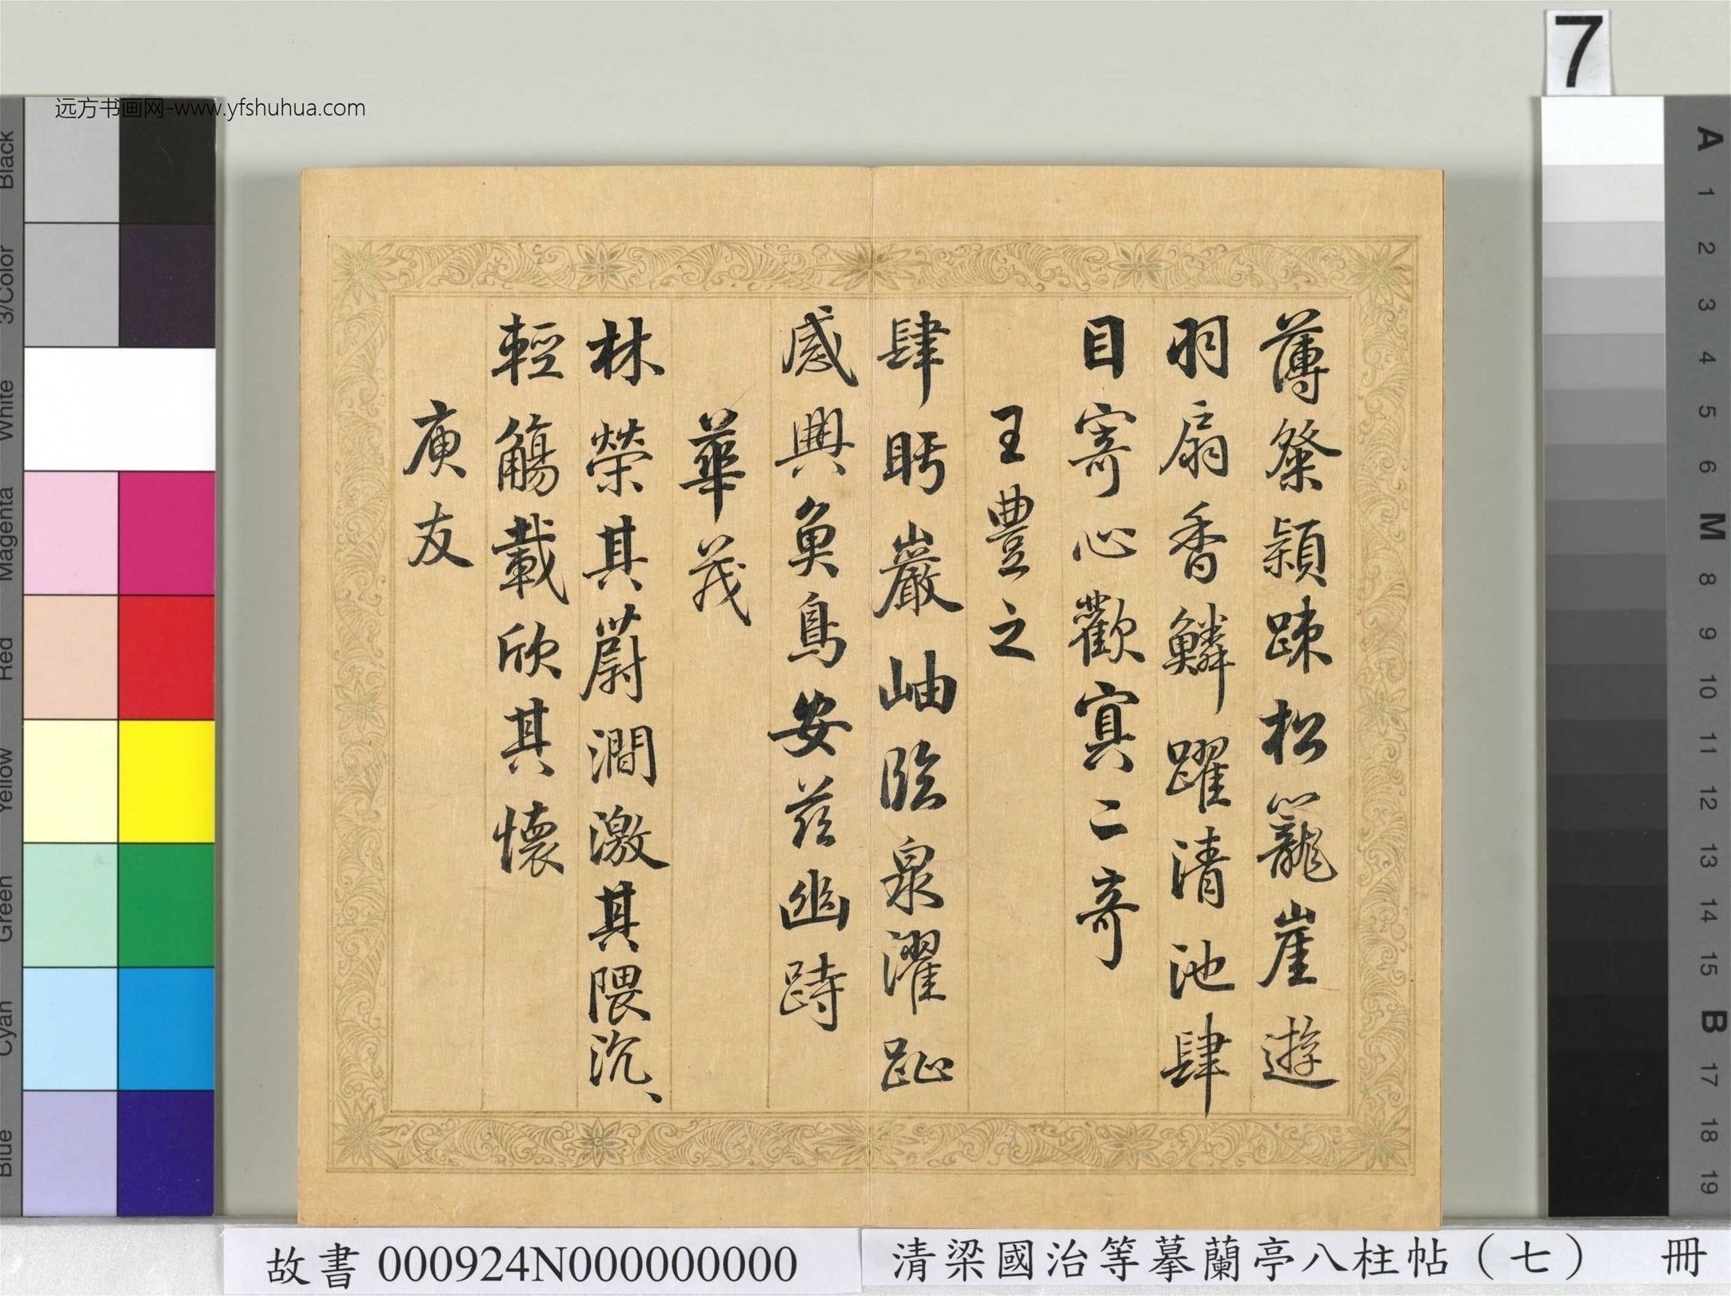 远方书画网-www.yfshuhua.com
7
薄粲穎踈松籠崖遊
羽扇香鱗躍清池肆
目寄心歡冥二奇
王豊之
肆眄巖岫臨泉濯趾
感興魚鳥安茲幽跱
華茂
林榮其蔚澗激其隈汎、
輕觴載欣其懷
庾友
Black
3/Color
White
Magenta
Red
Yellow
Green
Cyan
Blue
A
1
2
3
4
5
6
M
8
9
10
11
12
13
14
15
B
17
18
19
故書 000924N000000000
清梁國治等摹蘭亭八柱帖（七） 冊